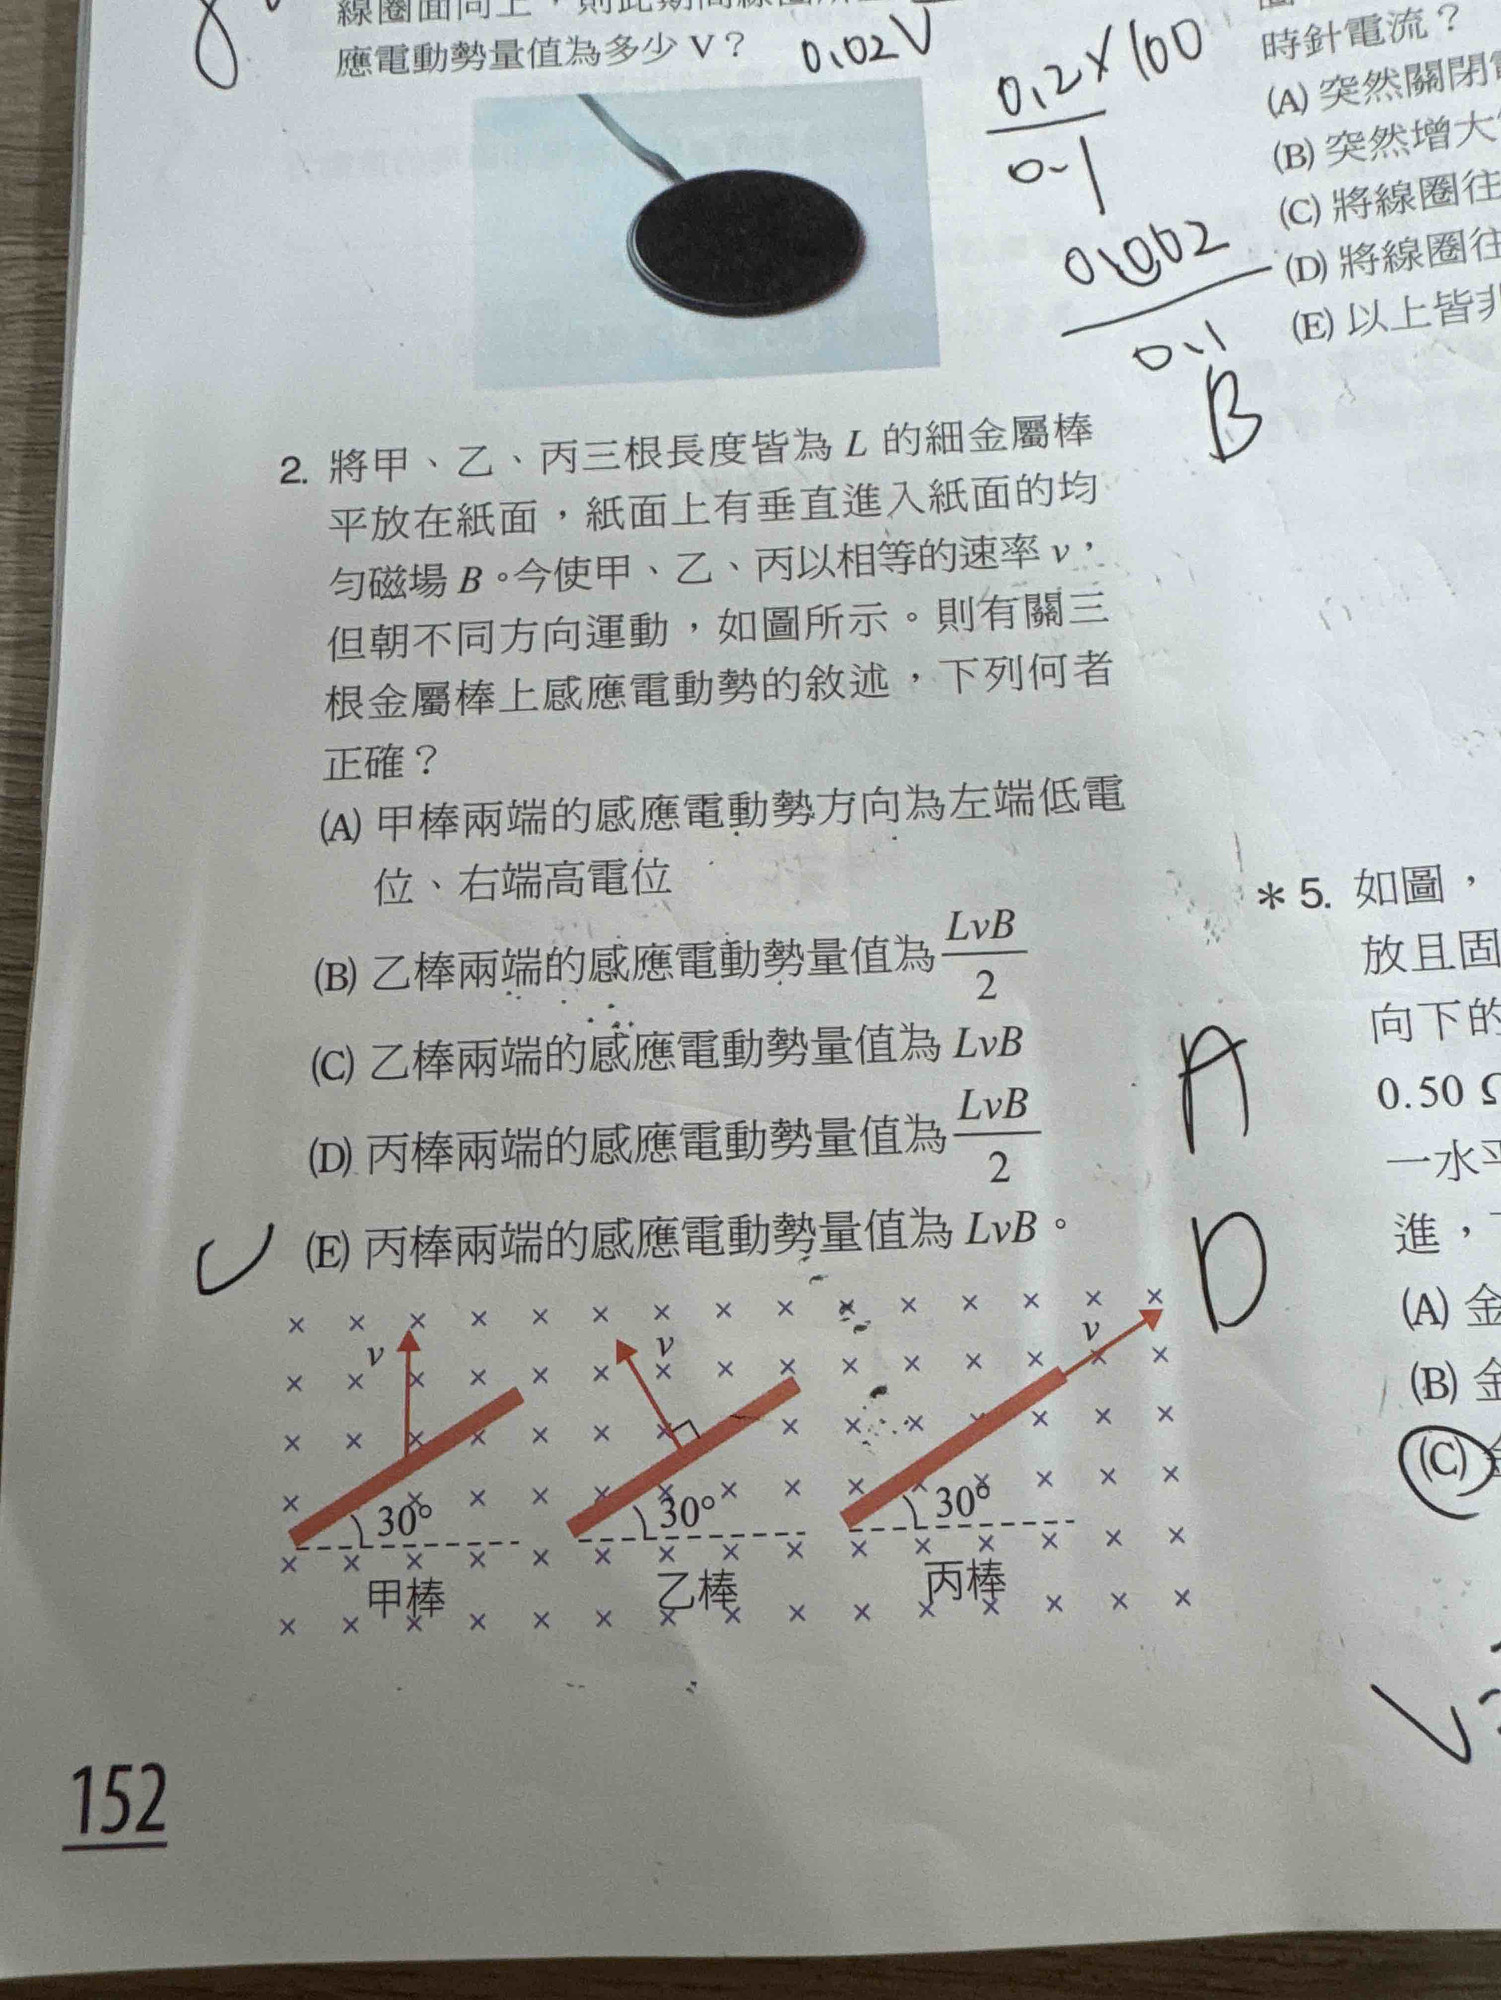 應電動勢量值為多少 V？
0.02V
0.2×100
0.1
0.002
0.1
B
2. 將甲、乙、丙三根長度皆為 L 的細金屬棒
平放在紙面，紙面上有垂直進入紙面的均
勻磁場 B。今使甲、乙、丙以相等的速率 v，
但朝不同方向運動，如圖所示。則有關三
根金屬棒上感應電動勢的敘述，下列何者
正確？
(A) 甲棒兩端的感應電動勢方向為左端低電
位、右端高電位
(B) 乙棒兩端的感應電動勢量值為 LvB/2
(C) 乙棒兩端的感應電動勢量值為 LvB
(D) 丙棒兩端的感應電動勢量值為 LvB/2
(E) 丙棒兩端的感應電動勢量值為 LvB。
v
v
v
30°
30°
30°
甲棒
乙棒
丙棒
152
時針電流？
(A) 突然關閉
(B) 突然增大
(C) 將線圈往
(D) 將線圈往
(E) 以上皆非
＊5. 如圖，
放且固
向下的
0.50 Ω
一水平
進，
(A) 金
(B) 金
(C) 金
A
D